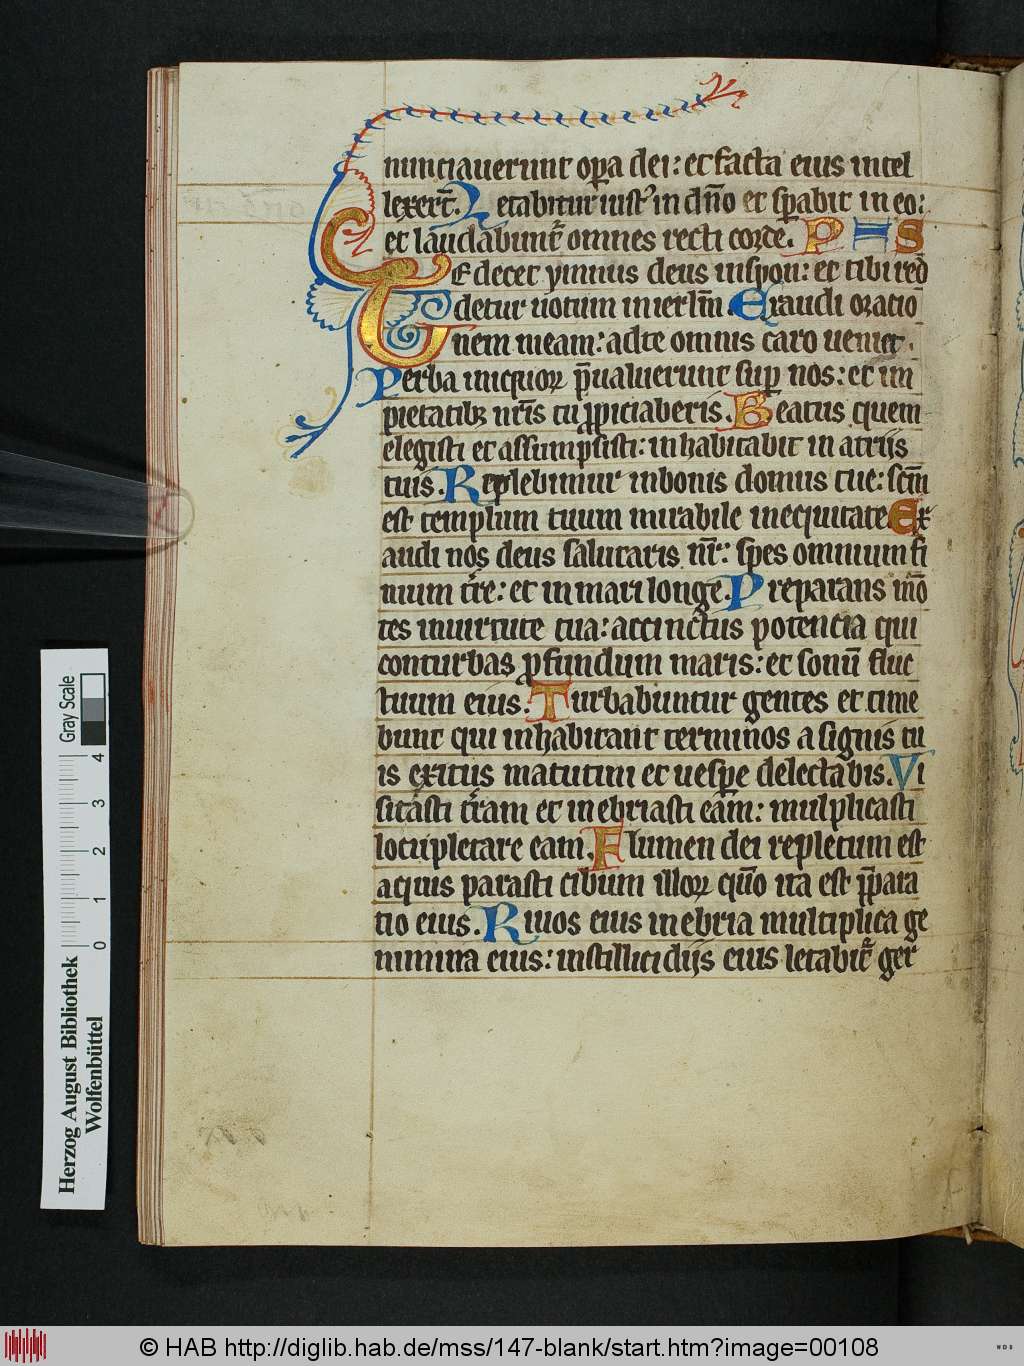 nunciauerunt oꝑa dei: et facta eius intel
lexer̄t. Letabitur iustꝰ in dn̄o et sꝑabit in eo:
et laudabunt᷑ omnes recti corde. P H S
TE decet ymnus deus in syon: et tibi red
detur uotum in ierl̄m. Exaudi oratio
nem meam: ad te omnis caro ueniet.
Verba iniquoꝝ p̄ualuerunt suꝑ nos: et im
pietatibꝫ nr̄is tu ꝓpiciaberis. Beatus quem
elegisti et assumpsisti: inhabitabit in atrijs
tuis. Replebimur in bonis domus tue: sc̄m
est templum tuum mirabile in equitate. Ex
audi nos deus salutaris nr̄: spes omnium fi
nium tr̄re: et in mari longe. Preparans mō
tes in uirtute tua: accinctus potencia qui
conturbas ꝓfundum maris: et sonū fluc
tuum eius. Turbabuntur gentes et time
bunt qui inhabitant terminos a signis tu
is exitus matutini et uesꝑe delectabis. Vi
sitasti tr̄am et inebriasti eam: mulplicasti
locupletare eam. Flumen dei repletum est
aquis parasti cibum illoꝝ qm̄o ita est p̄para
tio eius. Riuos eius inebria multiplica ge
nimina eius: in stillicidijs eius letabit᷑ ger
Gray Scale
0 1 2 3 4
Herzog August Bibliothek
Wolfenbüttel
© HAB http://diglib.hab.de/mss/147-blank/start.htm?image=00108